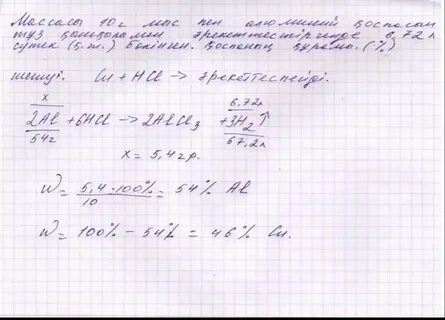 Массасы 10г мыс пен алюминий қоспасын
тұз қышқылымен әрекеттестіргенде 6,72л
сутек (қ.ж.) бөлінген. Қоспаның құрамы. (%)
шешуі. Cu + HCl → әрекеттеспейді.
x 6,72л
2Al + 6HCl → 2AlCl3 + 3H2↑
54г 67,2л
x = 5,4гр.
W = 5,4 · 100% / 10 = 54% Al
W = 100% - 54% = 46% Cu.